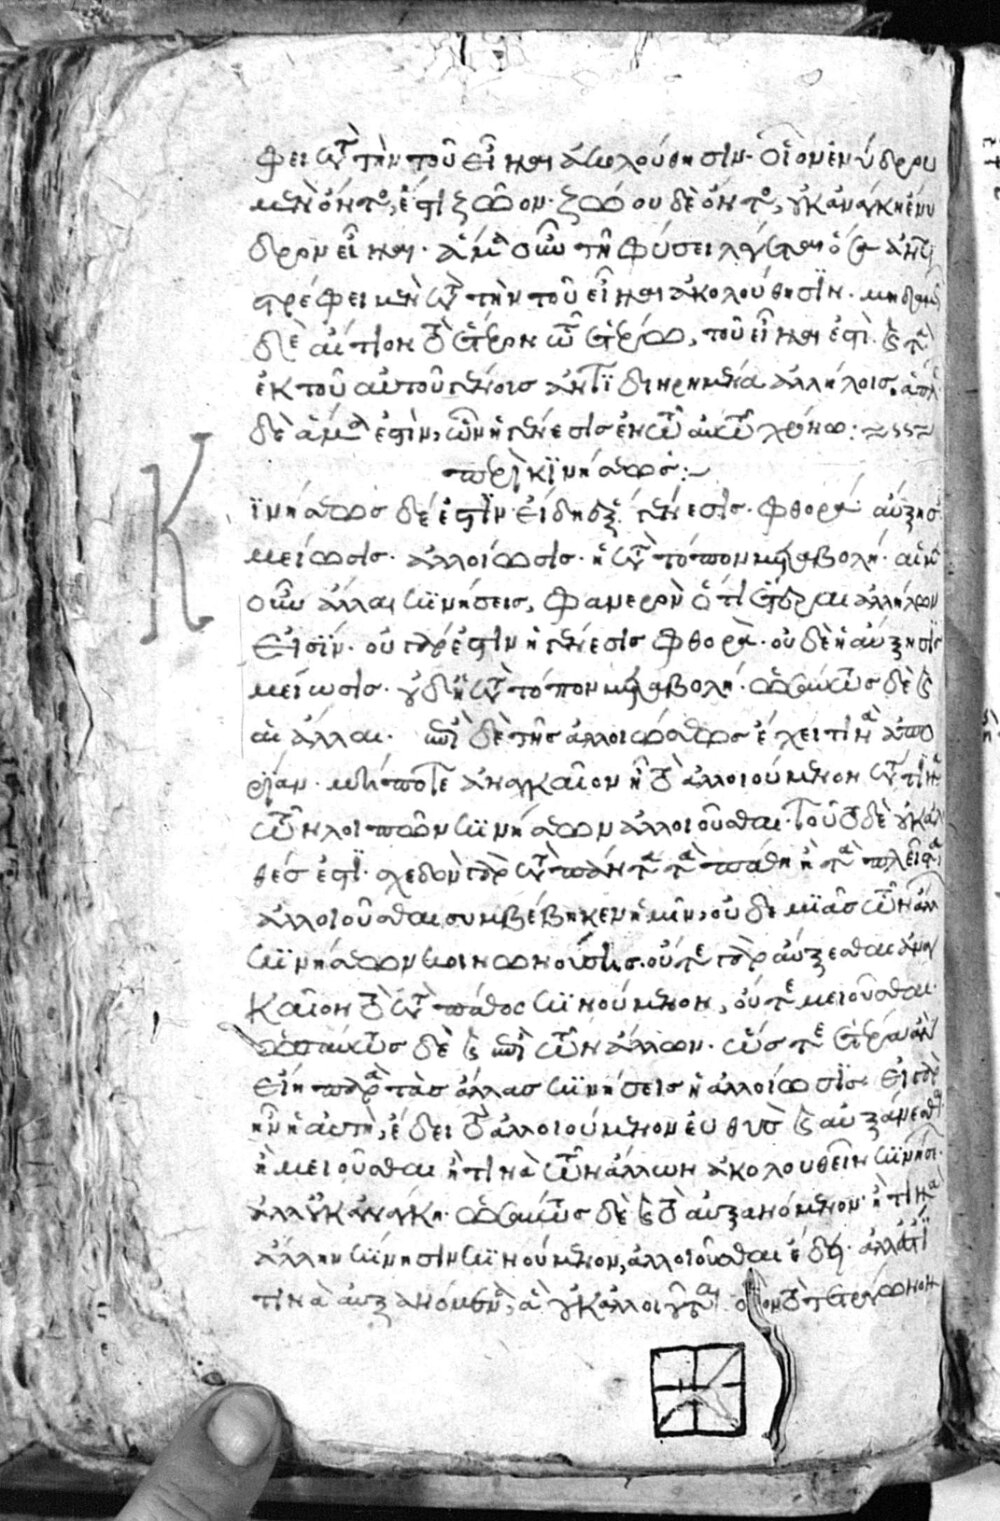 φει κατὰ τὴν τοῦ εἶναι ἀκολούθησιν· οἷον ἐνύδρου
μὲν ὄντος, ἔστι ζῶον· ζώου δὲ ὄντος, οὐκ ἀνάγκη ἔνυ
δρον εἶναι· ἅμα οὖν τῇ φύσει λέγεται ὅσα ἀντι
στρέφει μὲν κατὰ τὴν τοῦ εἶναι ἀκολούθησϊν· μηδαμῶς
δὲ αἴτιον τὸ ἕτερον τῷ ἑτέρω, τοῦ εἶναι ἐστὶ· καὶ τὰ
ἐκ τοῦ αὐτοῦ γένους ἀντϊδιηρημένα ἀλλήλοις, ἁπλῶς
δὲ ἅμα ἐστὶν, ὧν ἡ γένεσις ἐν τῷ αὐτῷ χρόνω:
περὶ κϊνήσεως:
Κϊνήσεως δέ ἐστϊν εἴδη ἓξ· γένεσις· φθορά· αὔξησις
μείωσις· ἀλλοίωσις· ἡ κατὰ τόπον μεταβολή· αἱ μὲν
οὖν ἄλλαι κϊνήσεις, φανερὸν ὅτι ἕτεραι ἀλλήλων
εἰσϊν· οὐ γάρ ἐστιν ἡ γένεσις φθορὰ· οὐδὲ ἡ αὔξησϊς
μείωσις· οὐδὲ ἡ κατὰ τόπον μεταβολή· ὡσαύτως δὲ καὶ
αἱ ἄλλαι· ἐπὶ δὲ τῆς ἀλλοιώσεως ἔχει τινὰ ἀπο
ρίαν· μήποτε ἀναγκαῖον ᾖ τὸ ἀλλοιούμενον κατά τινα
τῶν λοιπῶν κϊνήσεων ἀλλοιοῦσθαι· τοῦτο δὲ οὐκ ἀλη
θές ἐστϊ· σχεδὸν γὰρ κατὰ πάντα τὰ πάθη ἢ τὰ πλεῖστα
ἀλλοιοῦσθαι συμβέβηκεν ἡμῖν, οὐδεμϊᾶς τῶν ἄλλων
κϊνήσεων κοινωνούσης· οὔτε γὰρ αὔξεσθαι ἀναγ
καῖον τὸ κατὰ πάθος κϊνούμενον, οὔτε μειοῦσθαι·
ὡσαύτως δὲ καὶ ἐπὶ τῶν ἄλλων· ὥστε ἑτέρα ἂν
εἴη παρὰ τὰς ἄλλας κϊνήσεις ἡ ἀλλοίωσϊς· εἰ γὰρ
ἦν ἡ αὐτὴ, ἔδει τὸ ἀλλοιούμενον εὐθὺς καὶ αὐξάνεσθαι
ἢ μειοῦσθαι ἤ τινα τῶν ἄλλων ἀκολουθεῖν κϊνήσεων·
ἀλλ' οὐκ ἀνάγκη· ὡσαύτως δὲ καὶ τὸ αὐξανόμενον· ἤ τινα
ἄλλην κϊνησιν κϊνούμενον, ἀλλοιοῦσθαι ἔδει· ἀλλ' ἔστϊ
τινὰ αὐξανόμενα, ἃ οὐκ ἀλλοιοῦται· οἷον τὸ τετράγωνον